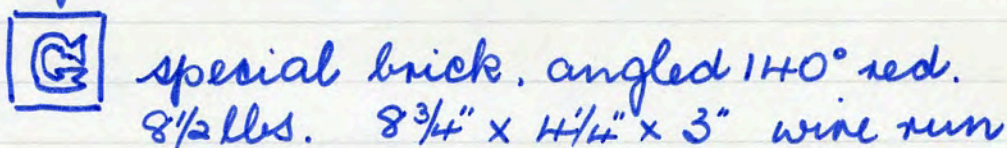 G special brick. angled 140° red.
8 1/2 lbs. 8 3/4" x 4 1/4" x 3" wire run